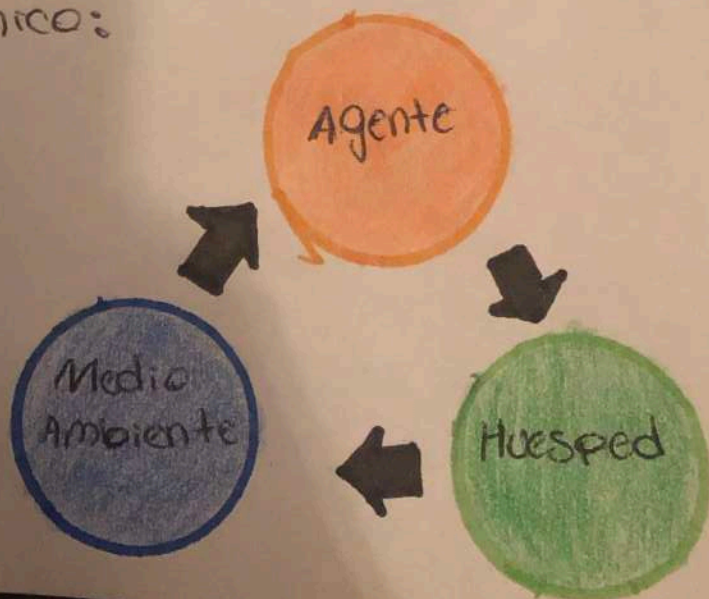 nico:
Agente
Medio
Ambiente
Huesped